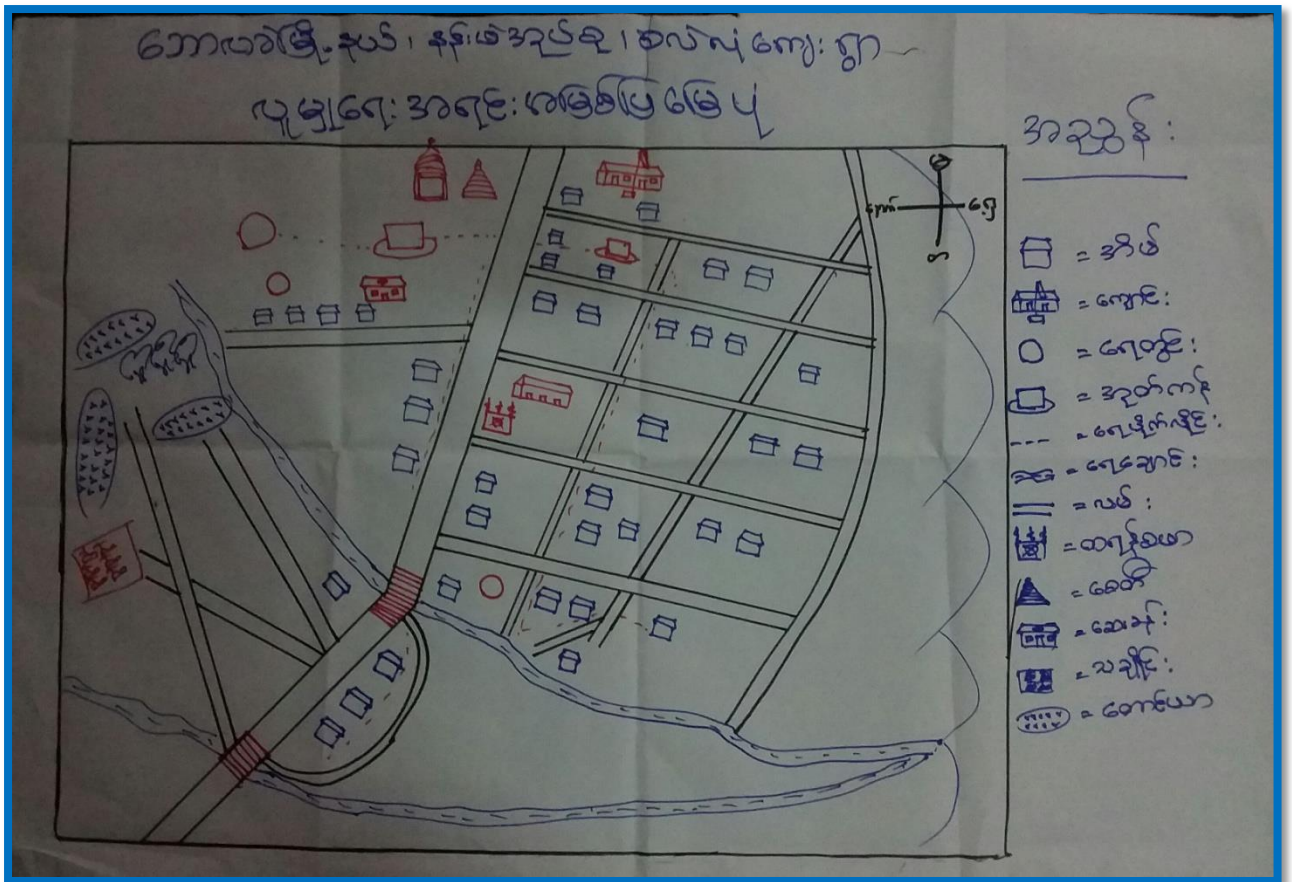 ဘောလခဲမြို့နယ်၊ နန်းဖဲအုပ်စု၊ ကျေးရွာ
လူမှုရေးအရင်းအမြစ်ပြမြေပုံ
အညွှန်း
မြောက်
နောက် ရှေ့
= အိမ်
= ကျောင်း
= ရေတွင်း
= အုတ်ကန်
= ရေပိုက်လိုင်း
= ရေချောင်း
= လမ်း
= ထရန်စဖော်မာ
= စေတီ
= ဆေးခန်း
= သချိုင်း
= တောင်ယာ